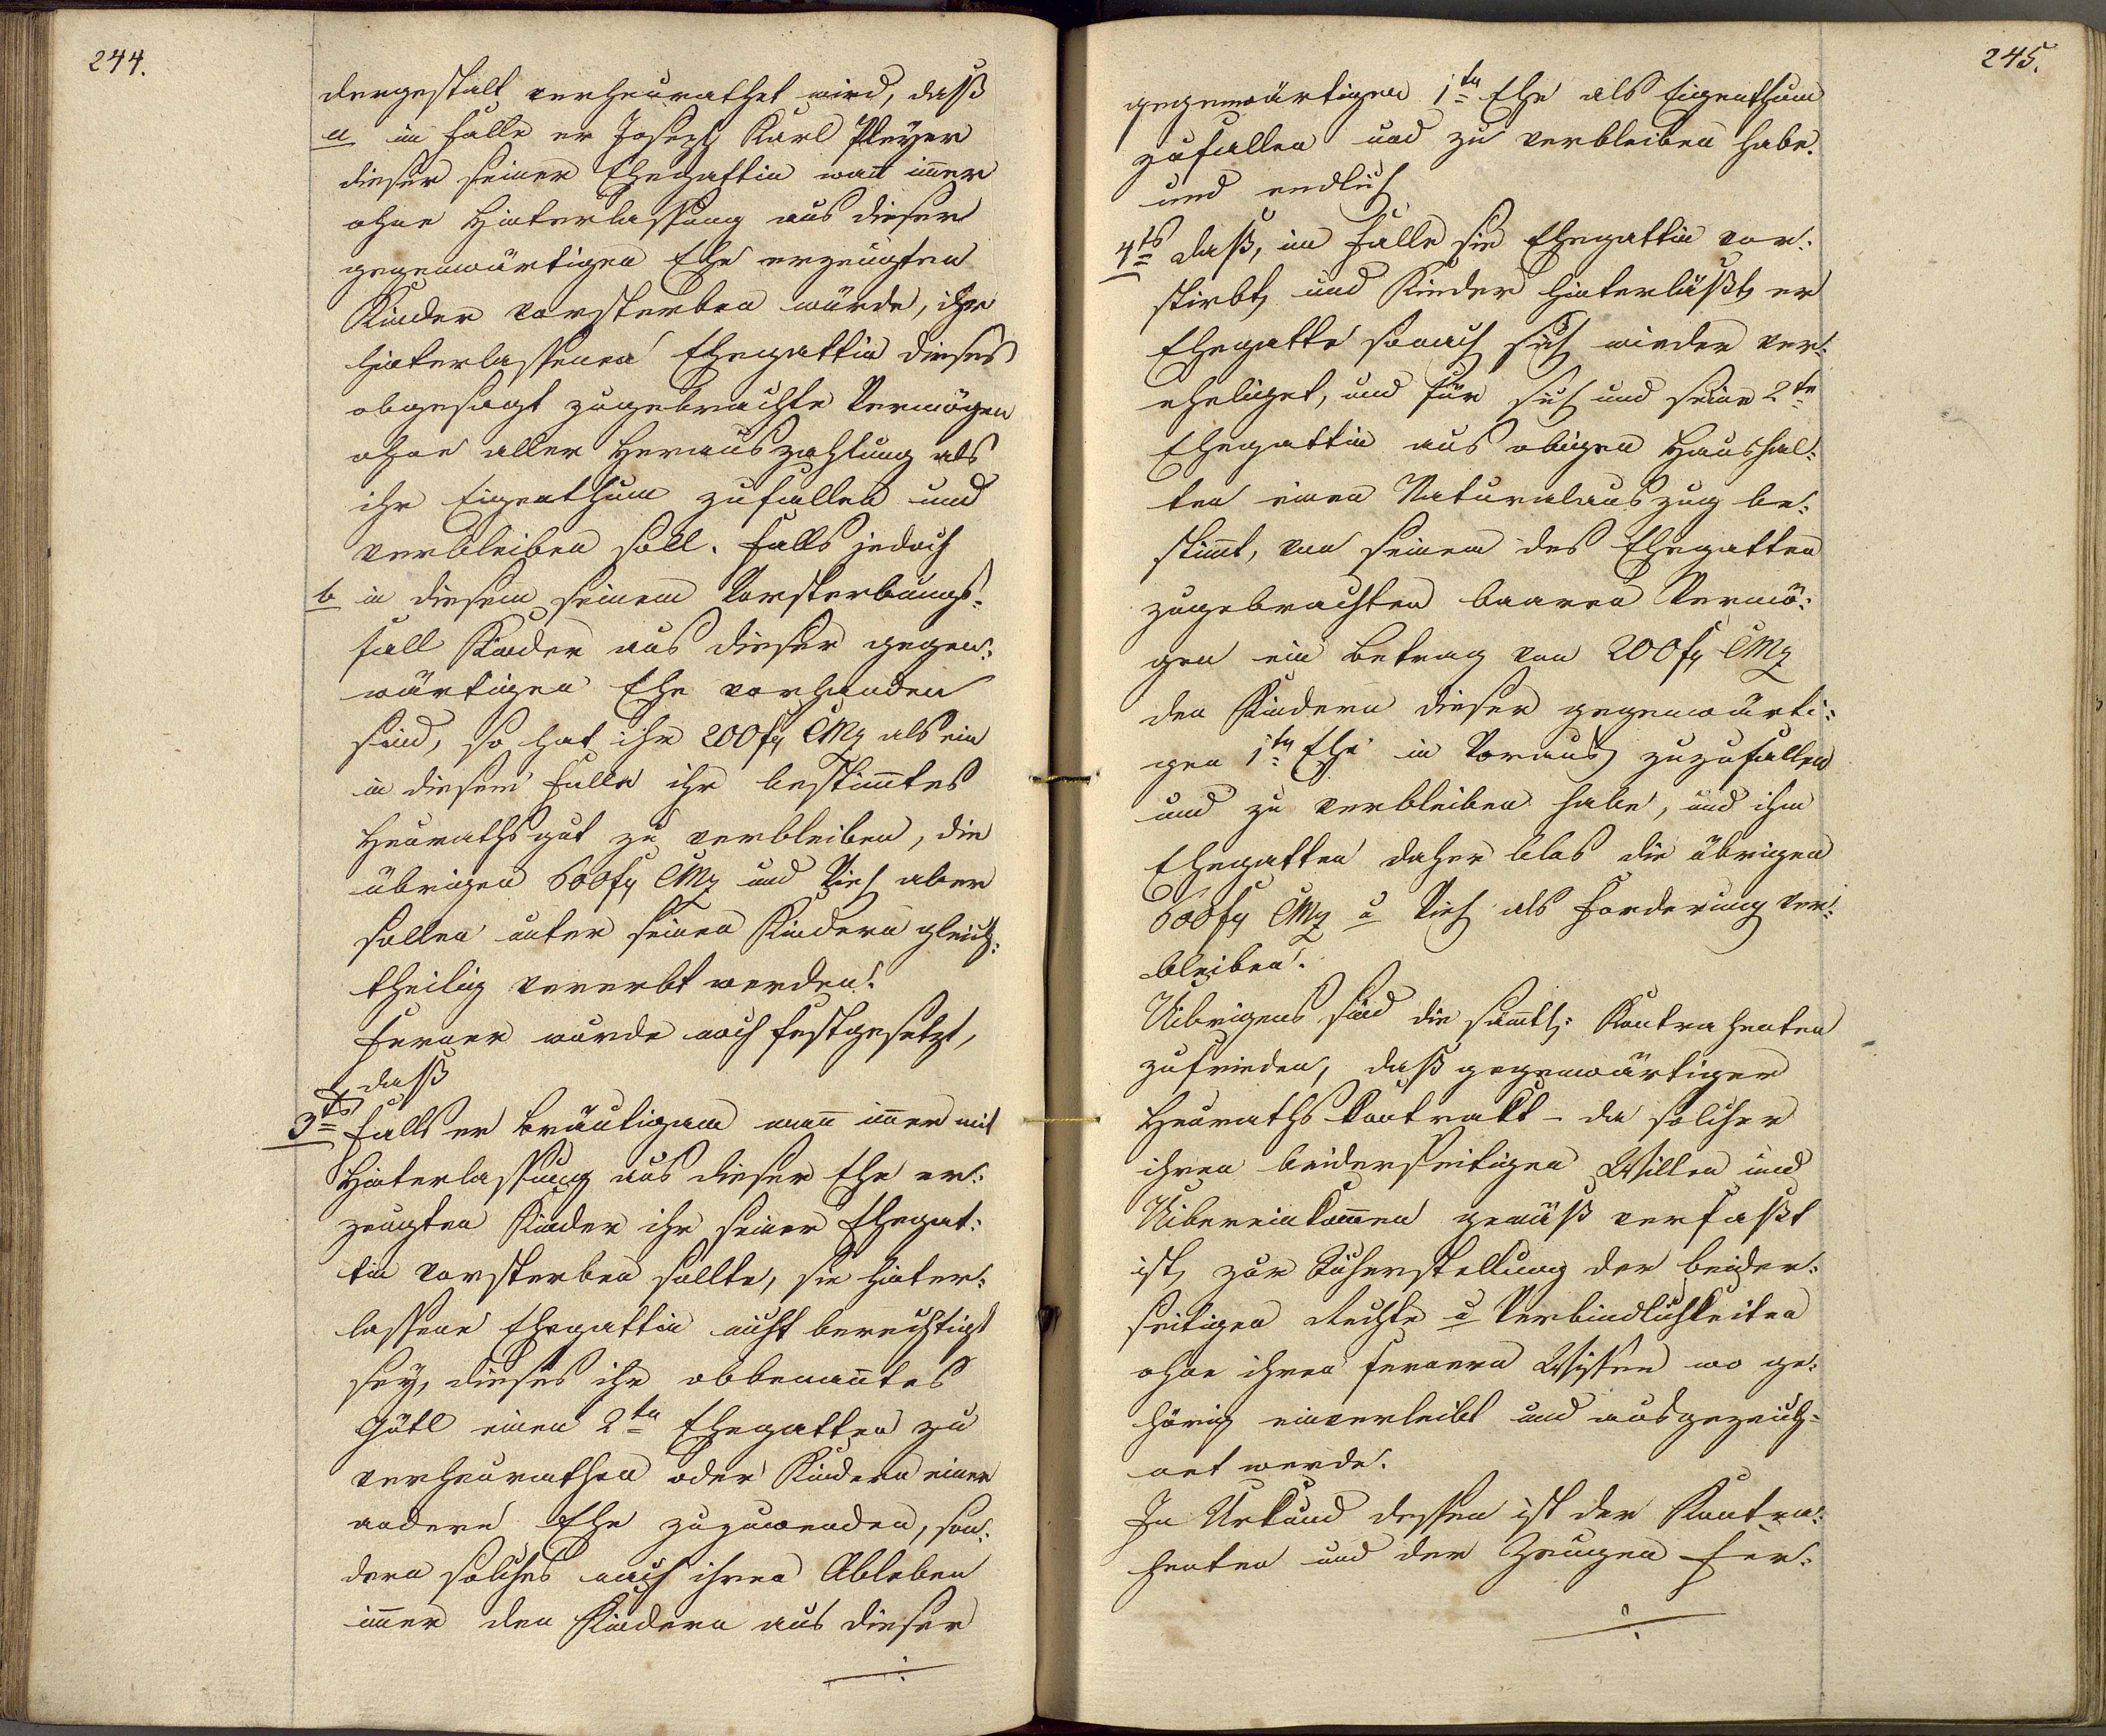 244.
dergestalt verheurathet wird, daß
a im Falle er Joseph Karl Pleyer
dieser seiner Ehegattin wan̄ im̄er
ohne Hinterlassung aus dieser
gegenwärtigen Ehe erzeugten
Kinder vorsterben würde, ihr
hinterlassenen Ehegattin dieses
obgesagt zugebrachte Vermögen
ohne aller Herauszahlung als
ihr Eigenthum zufallen und
verbleiben soll. Falls jedoch
b in diesem seinem Vorsterbungs-
fall Kinder aus dieser gegen:
wärtigen Ehe vorhanden
sind, so hat ihr 200 f CMz als ein
in diesem Falle ihr bestim̄tes
Heurathsgut zu verbleiben, die
übrigen 600 f CMz und Vieh aber
sollen unter seinen Kindern gleich:
theilig vererbt werden.
Ferner wurde noch festgesetzt,
daß
3tens Falls er Bräutigam wan̄ im̄er mit
Hinterlassung aus dieser Ehe er:
zeugten Kinder ihr seiner Ehegat:
tin vorsterben sollte, sie hinter:
lassene Ehegattin nicht berechtigt
sey, dieses ihr obbenan̄tes
Gütl einen 2ten Ehegatten zu
verheurathen oder Kindern einer
andern Ehe zuzuwenden, son:
dern solches nach ihren Ableben
im̄er den Kindern aus dieser
./.
245.
gegenwärtigen 1ten Ehe als Eigenthum
zufallen und zu verbleiben habe.
und endlich
4tens daß, im Falle sie Ehegattin vor:
stirbt, und Kinder hinterläßt, er
Ehegatte sonach sich wieder ver:
eheliget, und für sich und seine 2te
Ehegattin aus obigen Haushal:
ten einen Naturalauszug be:
stim̄t, von seinem des Ehegatten
zugebrachten baaren Vermö:
gen ein Betrag von 200 f CMz
den Kindern dieser gegenwärti:
gen 1ten Ehe in Voraus zuzufallen
und zu verbleiben habe, und ihm
Ehegatten daher blos die übrigen
600 f CMz u Vieh als Forderung ver:
bleiben.
Uibrigens sind die säm̄tl: Kontrahenten
zufrieden, daß gegenwärtiger
Heuraths Kontrakt – da solcher
ihren beiderseitigen Willen und
Uibereinkom̄en gemäß verfaßt
ist, zur Sicherstellung der beider:
seitigen Rechte u Verbindlichkeiten
ohne ihren fernern Wissen wo ge:
hörig einverleibt und ausgezeich:
net werde.
In Urkund dessen ist der Kontra:
henten und der Zeugen Fer:
./.